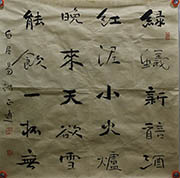 綠蟻新醅酒
紅泥小火爐
晚來天欲雪
能飲一杯無